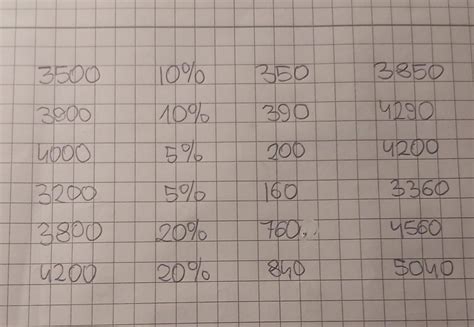 3500 10% 350 3850
3900 10% 390 4290
4000 5% 200 4200
3200 5% 160 3360
3800 20% 760.. 4560
4200 20% 840 5040